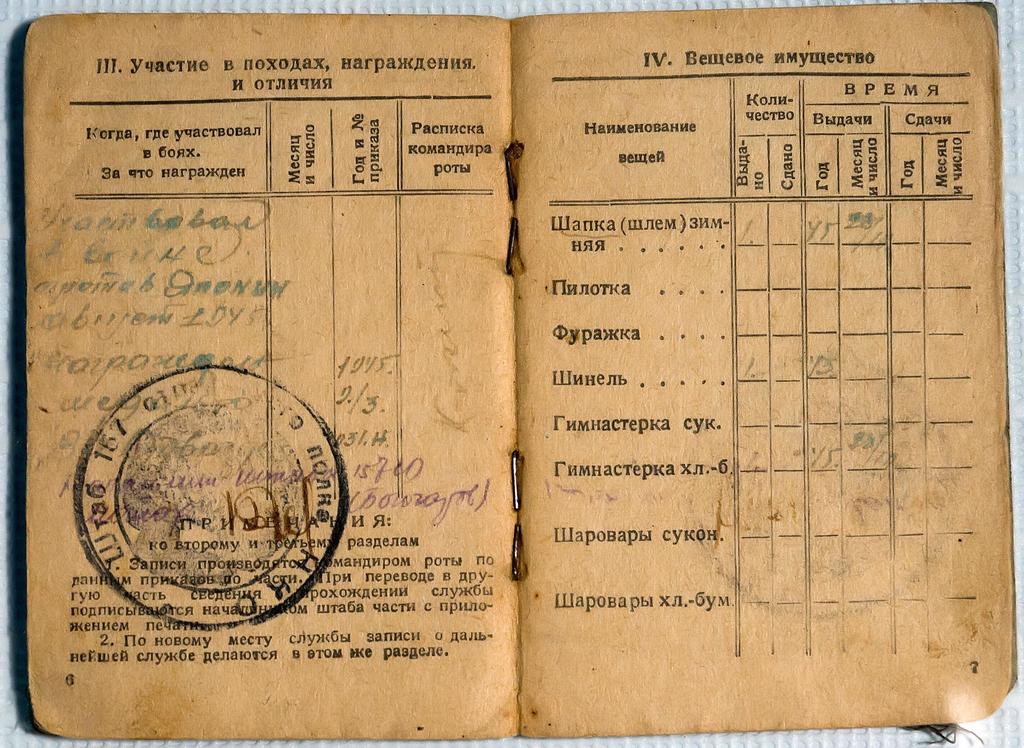 III. Участие в походах, награждения
и отличия
Когда, где участвовал
в боях.
За что награжден
Месяц
и число
Год и №
приказа
Расписка
командира
роты
Участвовал
в войне
против Японии
август 1945
Награжден
1945.
2/3.
Штаб 157 полка
15700
ПРИМЕЧАНИЯ:
ко второму и третьему разделам
1. Записи производятся командиром роты по
данным приказов по части. При переводе в дру-
гую часть сведения прохождении службы
подписываются начальником штаба части с прило-
жением печати.
2. По новому месту службы записи о даль-
нейшей службе делаются в этом же разделе.
6
IV. Вещевое имущество
Наименование
вещей
Коли-
чество
ВРЕМЯ
Выдачи
Сдачи
Выда-
но
Сдано
Год
Месяц
и число
Год
Месяц
и число
Шапка (шлем) зим-
няя . . . . . . 1. 45
Пилотка . . . .
Фуражка . . . .
Шинель . . . . . 1.
Гимнастерка сук.
Гимнастерка хл.-б. 45.
Шаровары сукон.
Шаровары хл.-бум.
7